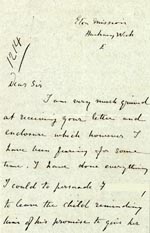 Eton Mission
Hackney Wick
E
1214
Dear Sir
I am very much grieved
at receiving your letter and
enclosure which however I
have been fearing for some
time. I have done everything
I could to persuade
to leave the child reminding
him of his promise to give her